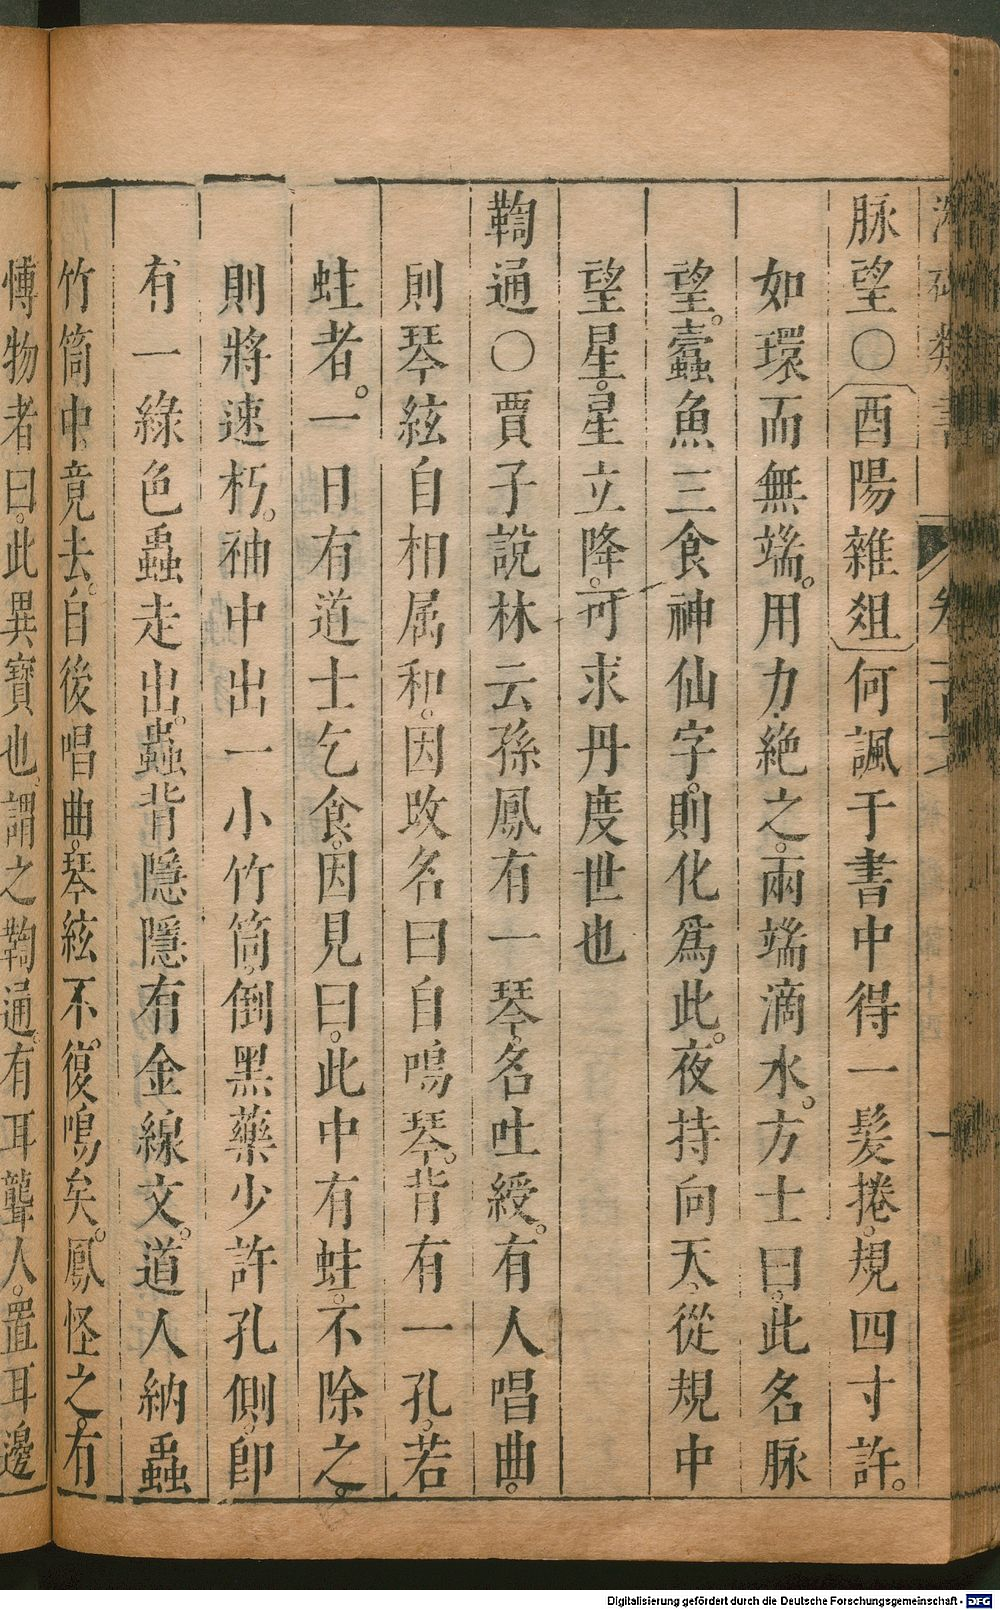 脉望〇酉陽雜俎何諷于書中得一髮捲。規四寸許。
如環而無端。用力絶之。兩端滴水。方士曰。此名脉
望。蠹魚三食神仙字。則化爲此。夜持向天、從規中
望星。星立降。可求丹度世也
鞫通〇賈子說林云孫鳳有一琴。名吐綬。有人唱曲。
則琴絃自相属和。因改名曰自鳴琴。背有一孔。若
蛀者。一日有道士乞食。因見曰。此中有蛀。不除之。
則將速朽。袖中出一小竹筒。倒黑藥少許孔側。卽
有一綠色蟲走出。蟲背隱隱有金線文。道人納蟲
竹筒中竟去。自後唱曲。琴絃不復鳴矣。鳳怪之。有
愽物者曰。此異寶也。謂之鞫通。有耳聾人。置耳邊
Digitalisierung gefördert durch die Deutsche Forschungsgemeinschaft - DFG